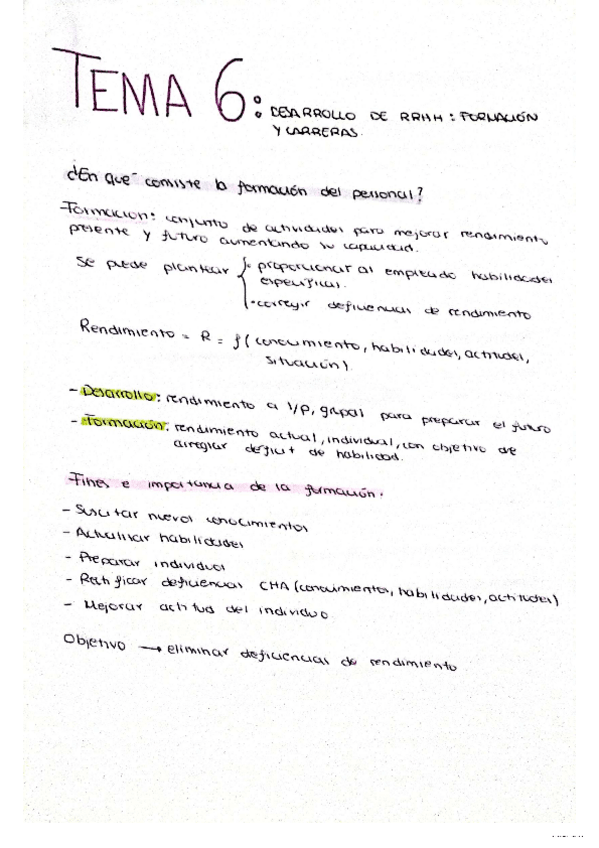 TEMA 6: DESARROLLO DE RRHH: FORMACIÓN
Y CARRERAS.
¿En qué consiste la formación del personal?
Formación: conjunto de actividades para mejorar rendimiento
presente y futuro aumentando su capacidad.
Se puede plantear { • proporcionar al empleado habilidades
específicas.
• corregir deficiencias de rendimiento
Rendimiento = R = f (conocimiento, habilidades, actitudes,
situación).
- Desarrollo: rendimiento a l/p, grupal para preparar el futuro
- Formación: rendimiento actual, individual, con objetivo de
arreglar déficit de habilidad.
Fines e importancia de la formación.
- Suscitar nuevos conocimientos
- Actualizar habilidades
- Preparar individuos
- Rectificar deficiencias CHA (conocimientos, habilidades, actitudes)
- Mejorar actitud del individuo.
Objetivo → eliminar deficiencias de rendimiento